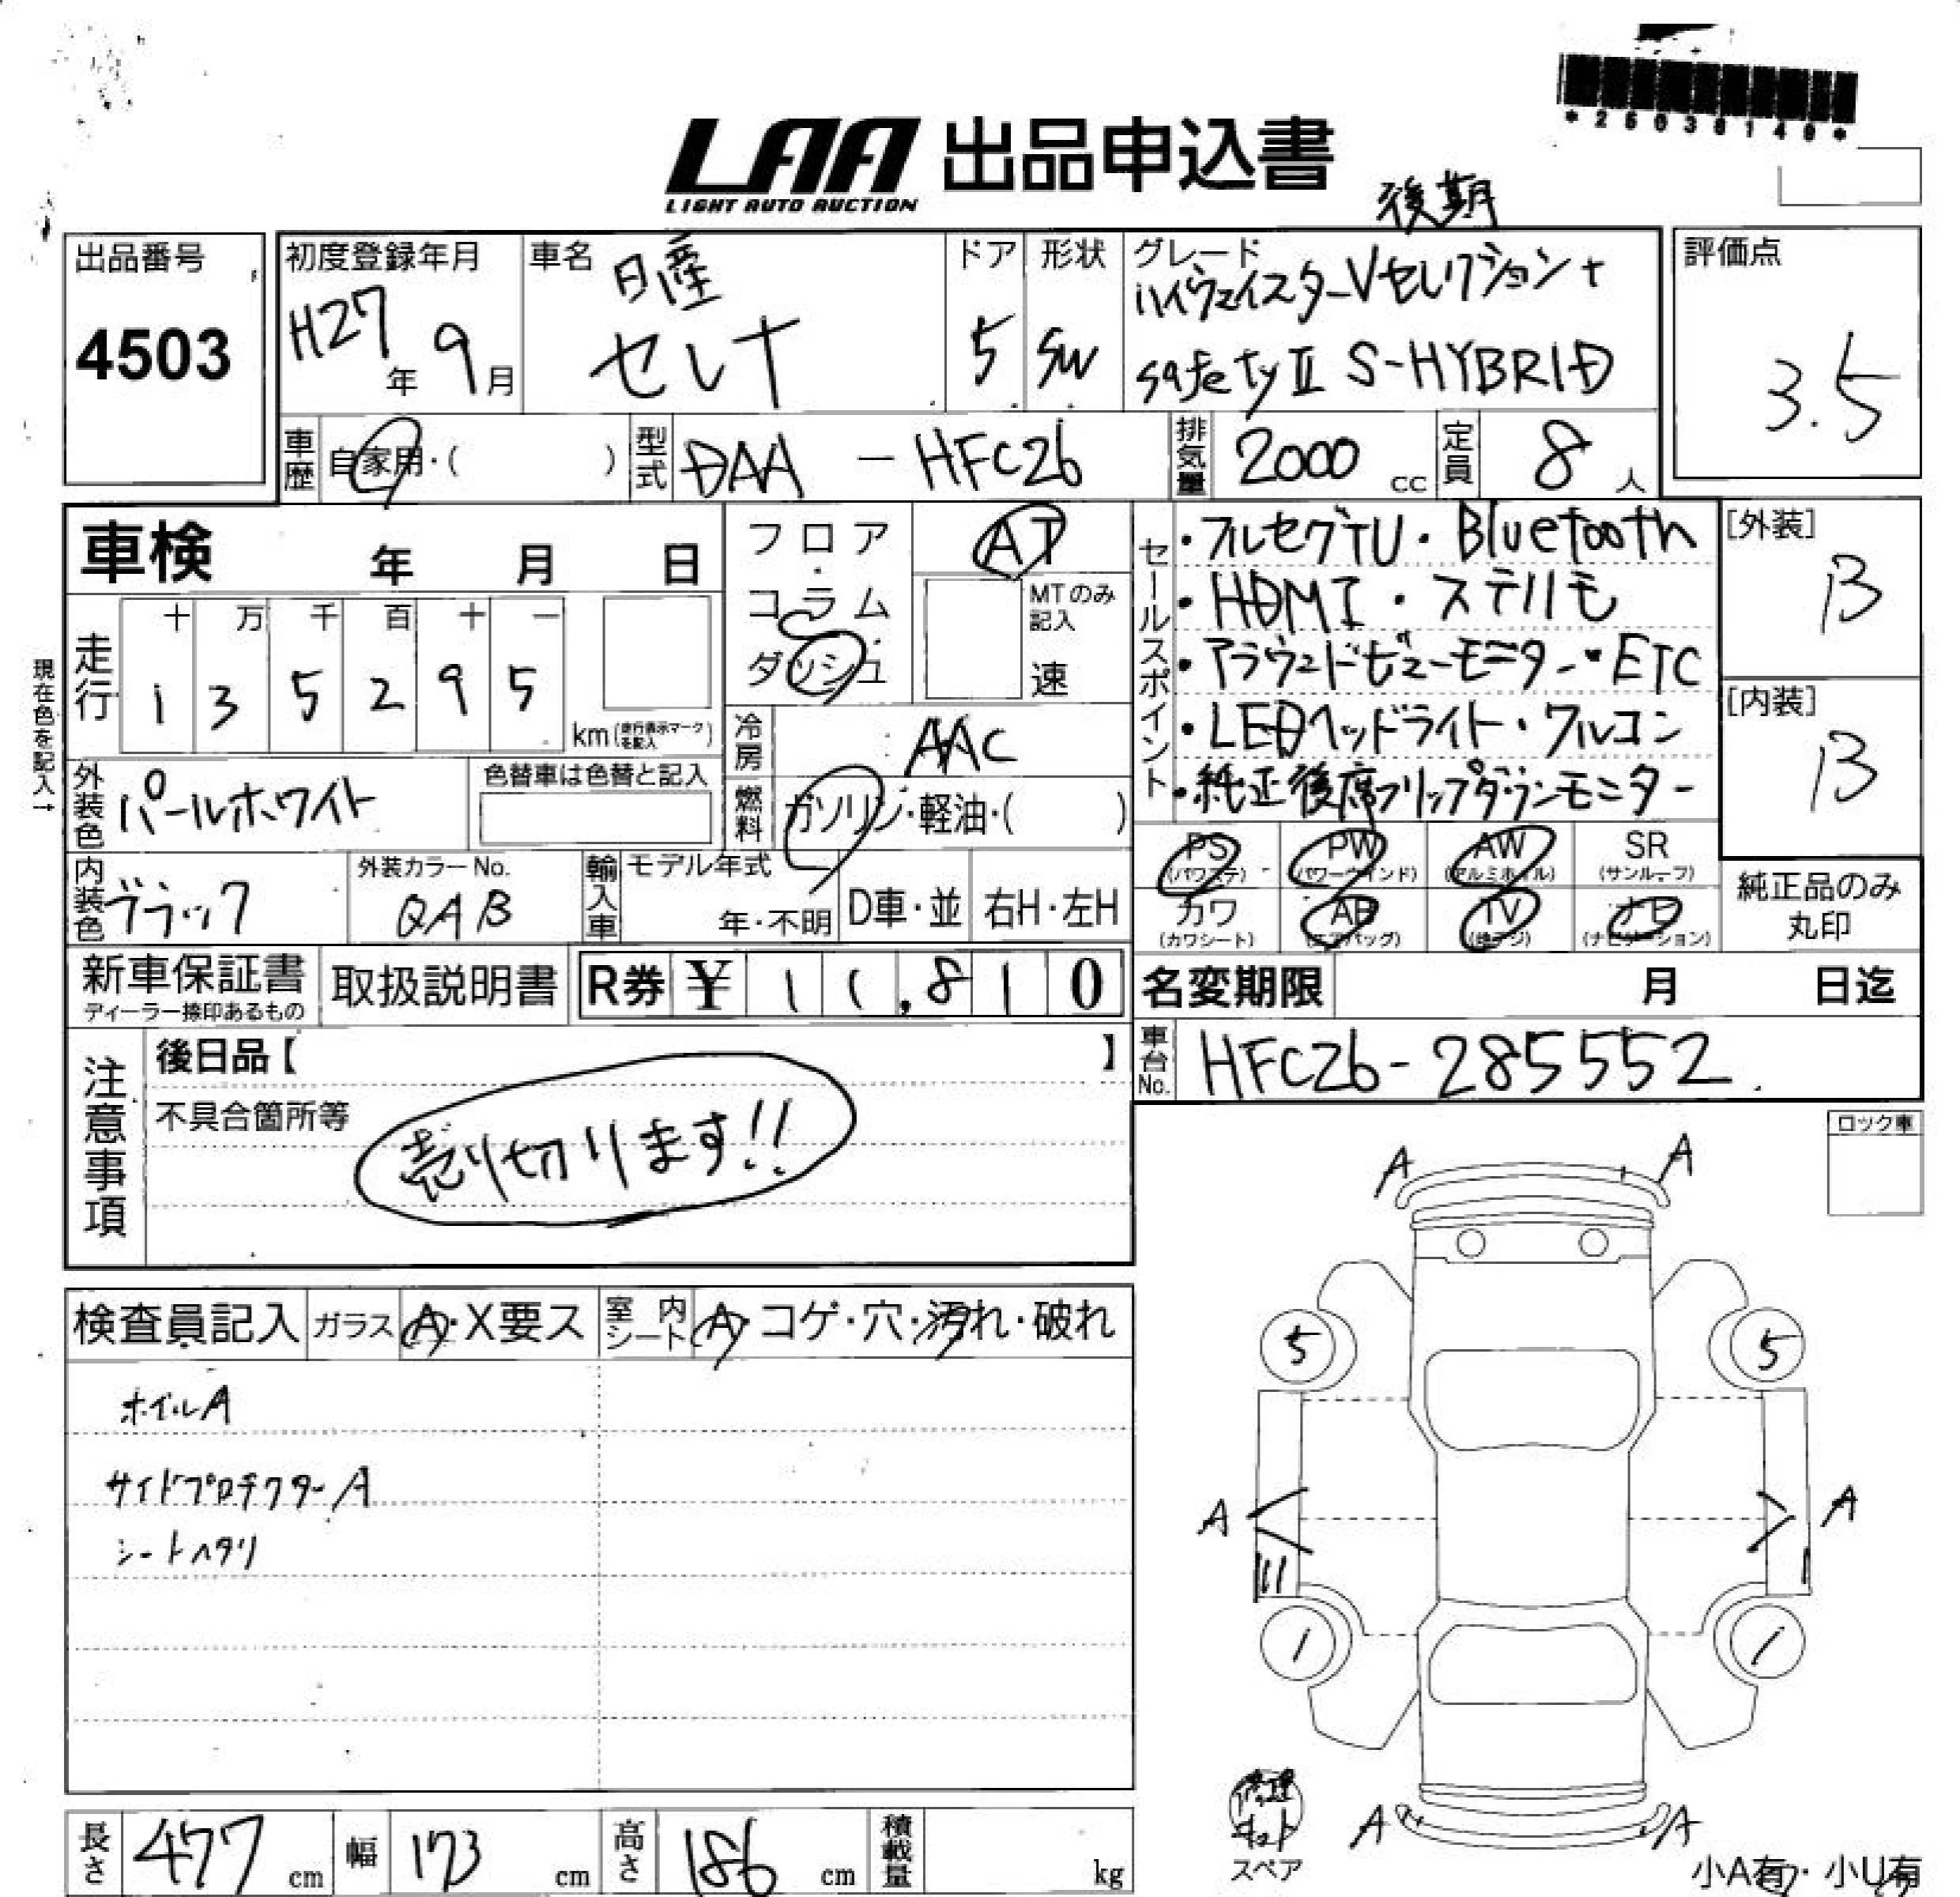 *25036149*
LAA 出品申込書
LIGHT AUTO AUCTION
後期
出品番号
4503
初度登録年月
H27年 9月
車名
日産
セレナ
ドア
5
形状
SW
グレード
ハイウェイスターVセレクション+
safetyⅡ S-HYBRID
評価点
3.5
車歴 自家用・( )
型式 DAA - HFC26
排気量 2000 cc
定員 8 人
車検 年 月 日
フロア・コラム・ダッシュ
AT
MTのみ記入
速
セールスポイント
・フルセグTV・Bluetooth
・HDMI・ステリモ
・アラウンドビューモニター・ETC
・LEDヘッドライト・クルコン
・純正後席フリップダウンモニター
[外装]
B
[内装]
B
現在色を記入→
走行
十 万 千 百 十 一
1 3 5 2 9 5
km(走行表示マークを記入)
冷房 AAC
燃料 ガソリン・軽油・( )
外装色 パールホワイト
色替車は色替と記入
PS (パワステ)
PW (パワーウインド)
AW (アルミホイル)
SR (サンルーフ)
カワ (カワシート)
AB (エアバッグ)
TV (地デジ)
ナビ (ナビゲーション)
純正品のみ
丸印
内装色 ブラック
外装カラーNo.
QAB
輸入車
モデル年式
年・不明
D車・並
右H・左H
新車保証書
ディーラー捺印あるもの
取扱説明書
R券 ¥ 11,810
名変期限 月 日迄
車台No. HFC26-285552
注意事項
後日品【 】
不具合箇所等
売り切ります!!
ロック車
検査員記入
ガラス A・X要ス
室内シート A・コゲ・穴・汚れ・破れ
ホイルA
サイドプロテクターA
シートヘタリ
A A
5 5
A A
1 1
A A
修理キット
スペア
小A有・小U有
長さ 477 cm
幅 173 cm
高さ 186 cm
積載量 kg